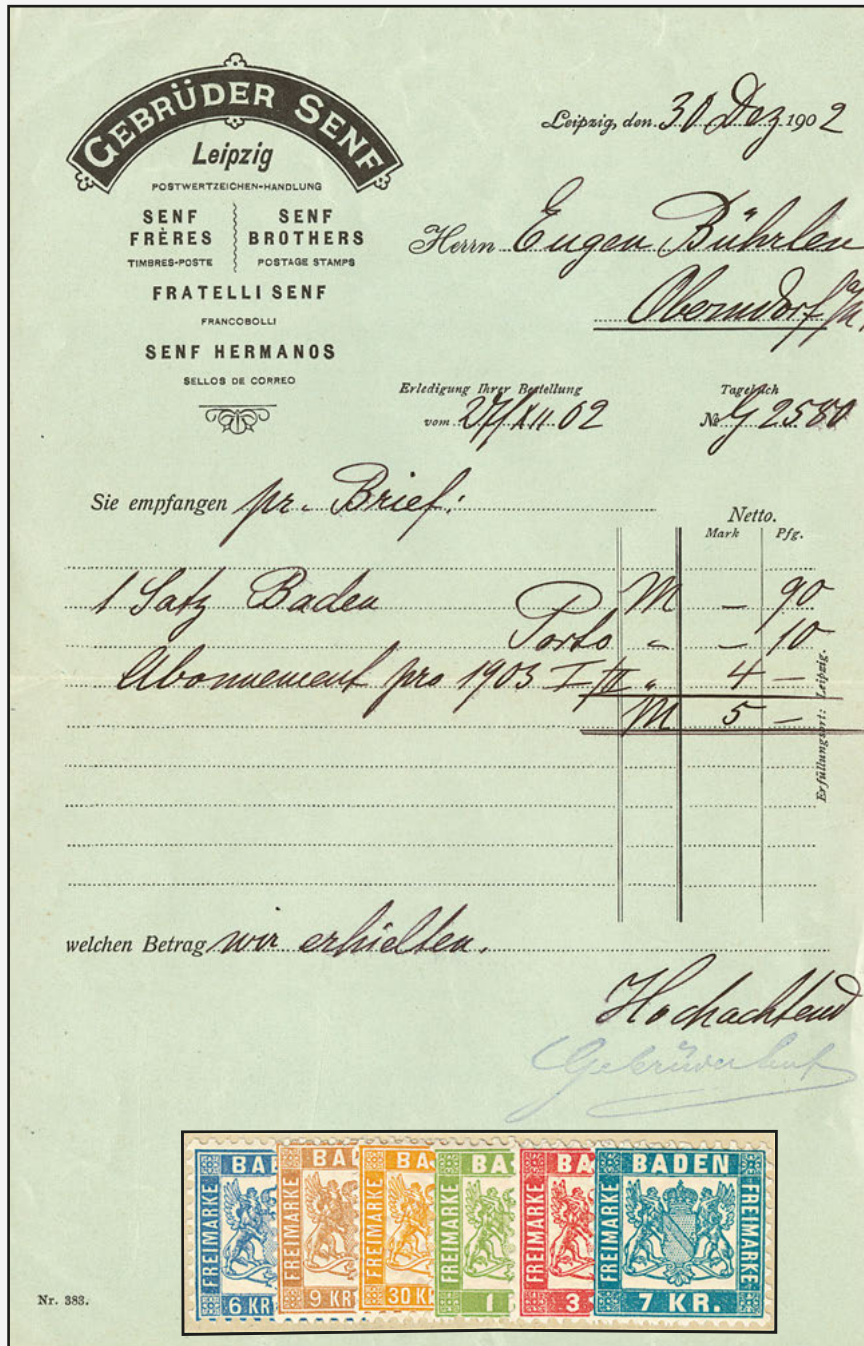 GEBRÜDER SENF
Leipzig
POSTWERTZEICHEN-HANDLUNG
SENF FRÈRES
TIMBRES-POSTE
SENF BROTHERS
POSTAGE STAMPS
FRATELLI SENF
FRANCOBOLLI
SENF HERMANOS
SELLOS DE CORREO
Leipzig, den 30 Dez 1902
Herrn Eugen Bührlen
Oberndorf a/N.
Erledigung Ihrer Bestellung
vom 27/XII 02
Tagebuch
No G 2580
Sie empfangen pr. Brief:
Netto.
Mark Pfg.
1 Satz Baden M – 90
Porto " – 10
Abonnement pro 1903 I/ " 4 –
M 5 –
Erfüllungsort: Leipzig.
welchen Betrag wir erhielten.
Hochachtend
Gebrüder Senf
BAD
FREIMARKE
6 KR
BAD
FREIMARKE
9 KR
BA
FREIMARKE
30 KR
BA
FREIMARKE
1
BA
FREIMARKE
3
BADEN
FREIMARKE
FREIMARKE
7 KR.
Nr. 383.